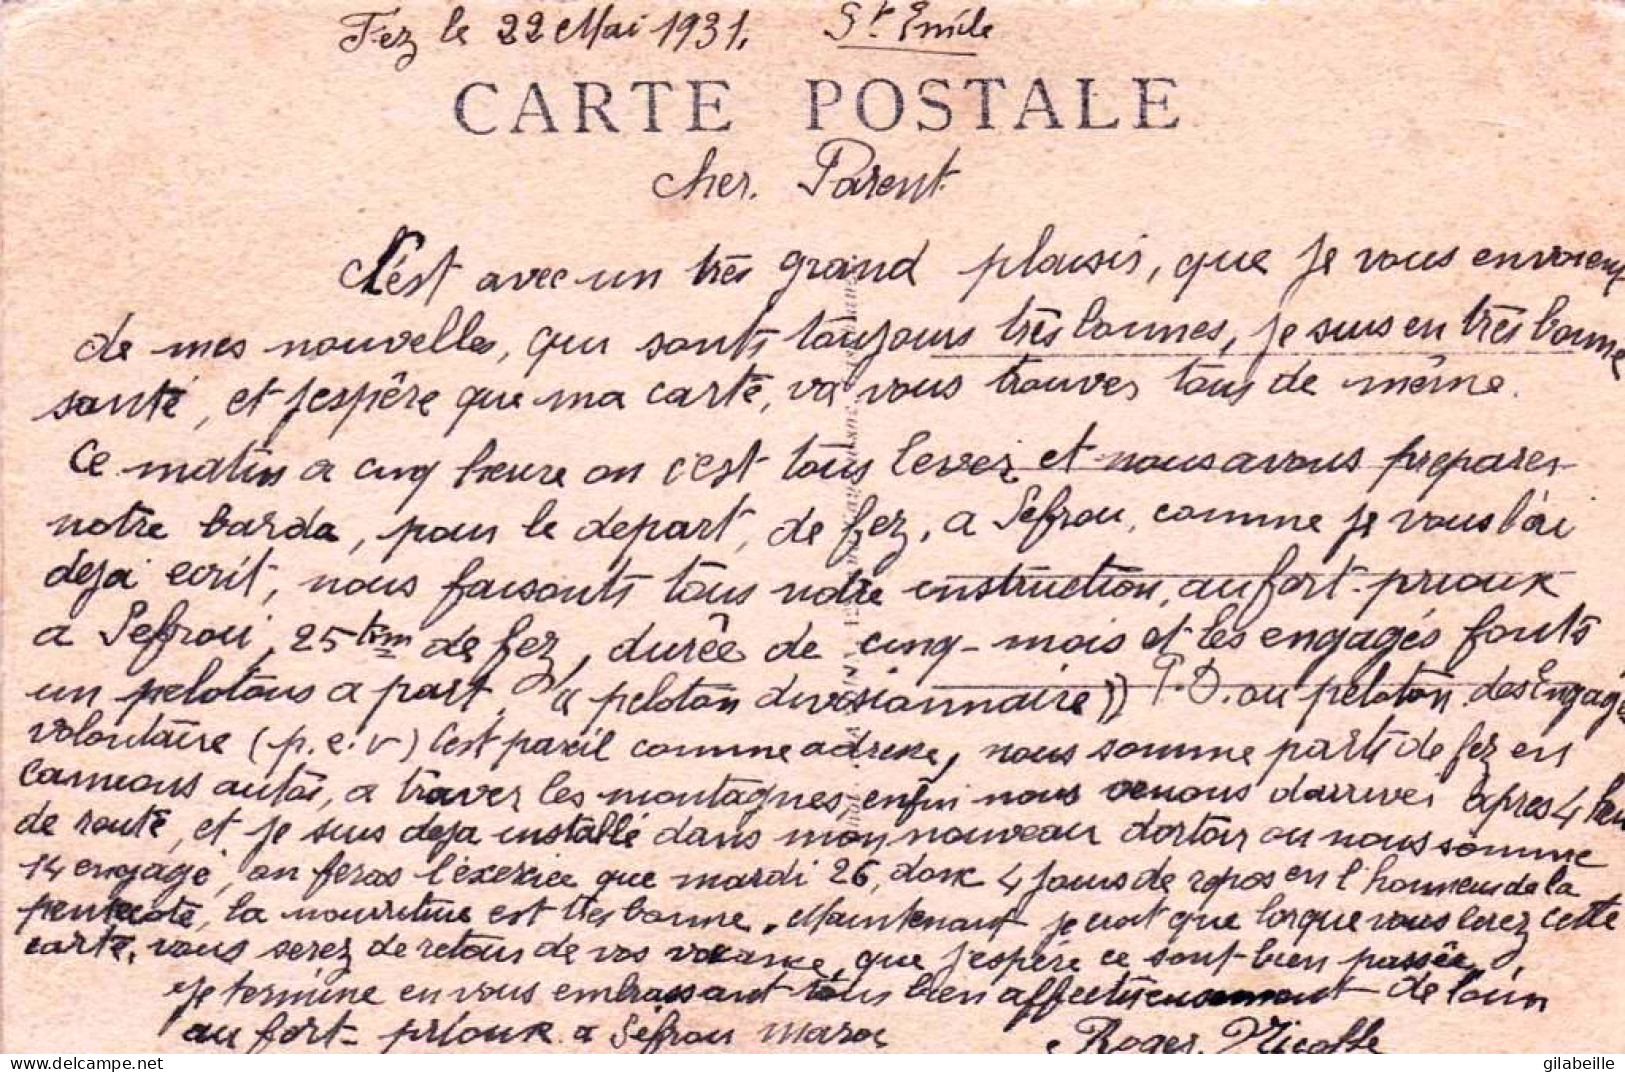 Fez le 22 Mai 1931. St Emile
CARTE POSTALE
Cher. Parent.
C'est avec un très grand plaisis, que je vous envoieux
de mes nouvelles, qui sonts toujours très bonnes, je suis en très bonne
santé, et j'espère que ma carte, va vous trouver tous de même.
Ce matin a cinq heure on c'est tous levez et nous avons preparer
notre barda, pour le depart, de fez, a Sefrou, comme je vous l'ai
deja ecrit, nous faisonts tous notre instruction, au fort-prioux
a Sefrou, 25 km de fez, durée de cinq-mois et les engagés fonts
un pelotons a part, "peloton divisionnaire" P.D. ou peloton des Engagé
volontaire (p.e.v) C'est pareil comme adresse, nous somme partis de fez en
camions autos, a traver les montagnes, enfin nous venons d'arriver apres 4 heu
de route, et je suis deja installé dans mon nouveau dortoir ou nous somme
14 engagé, on feras l'exercice que mardi 26, donc 4 jours de repos en l'honneur de la
pentecote, la nourriture est très bonne. Maintenant je croit que lorque vous lerez cette
carte, vous serez de retour de vos vacance, que j'espère ce sont bien passée,
Je termine en vous embrassant tous bien affectueusement de loin
au fort-prioux a Séfrou Maroc Roger. Nicolle
gilabeille